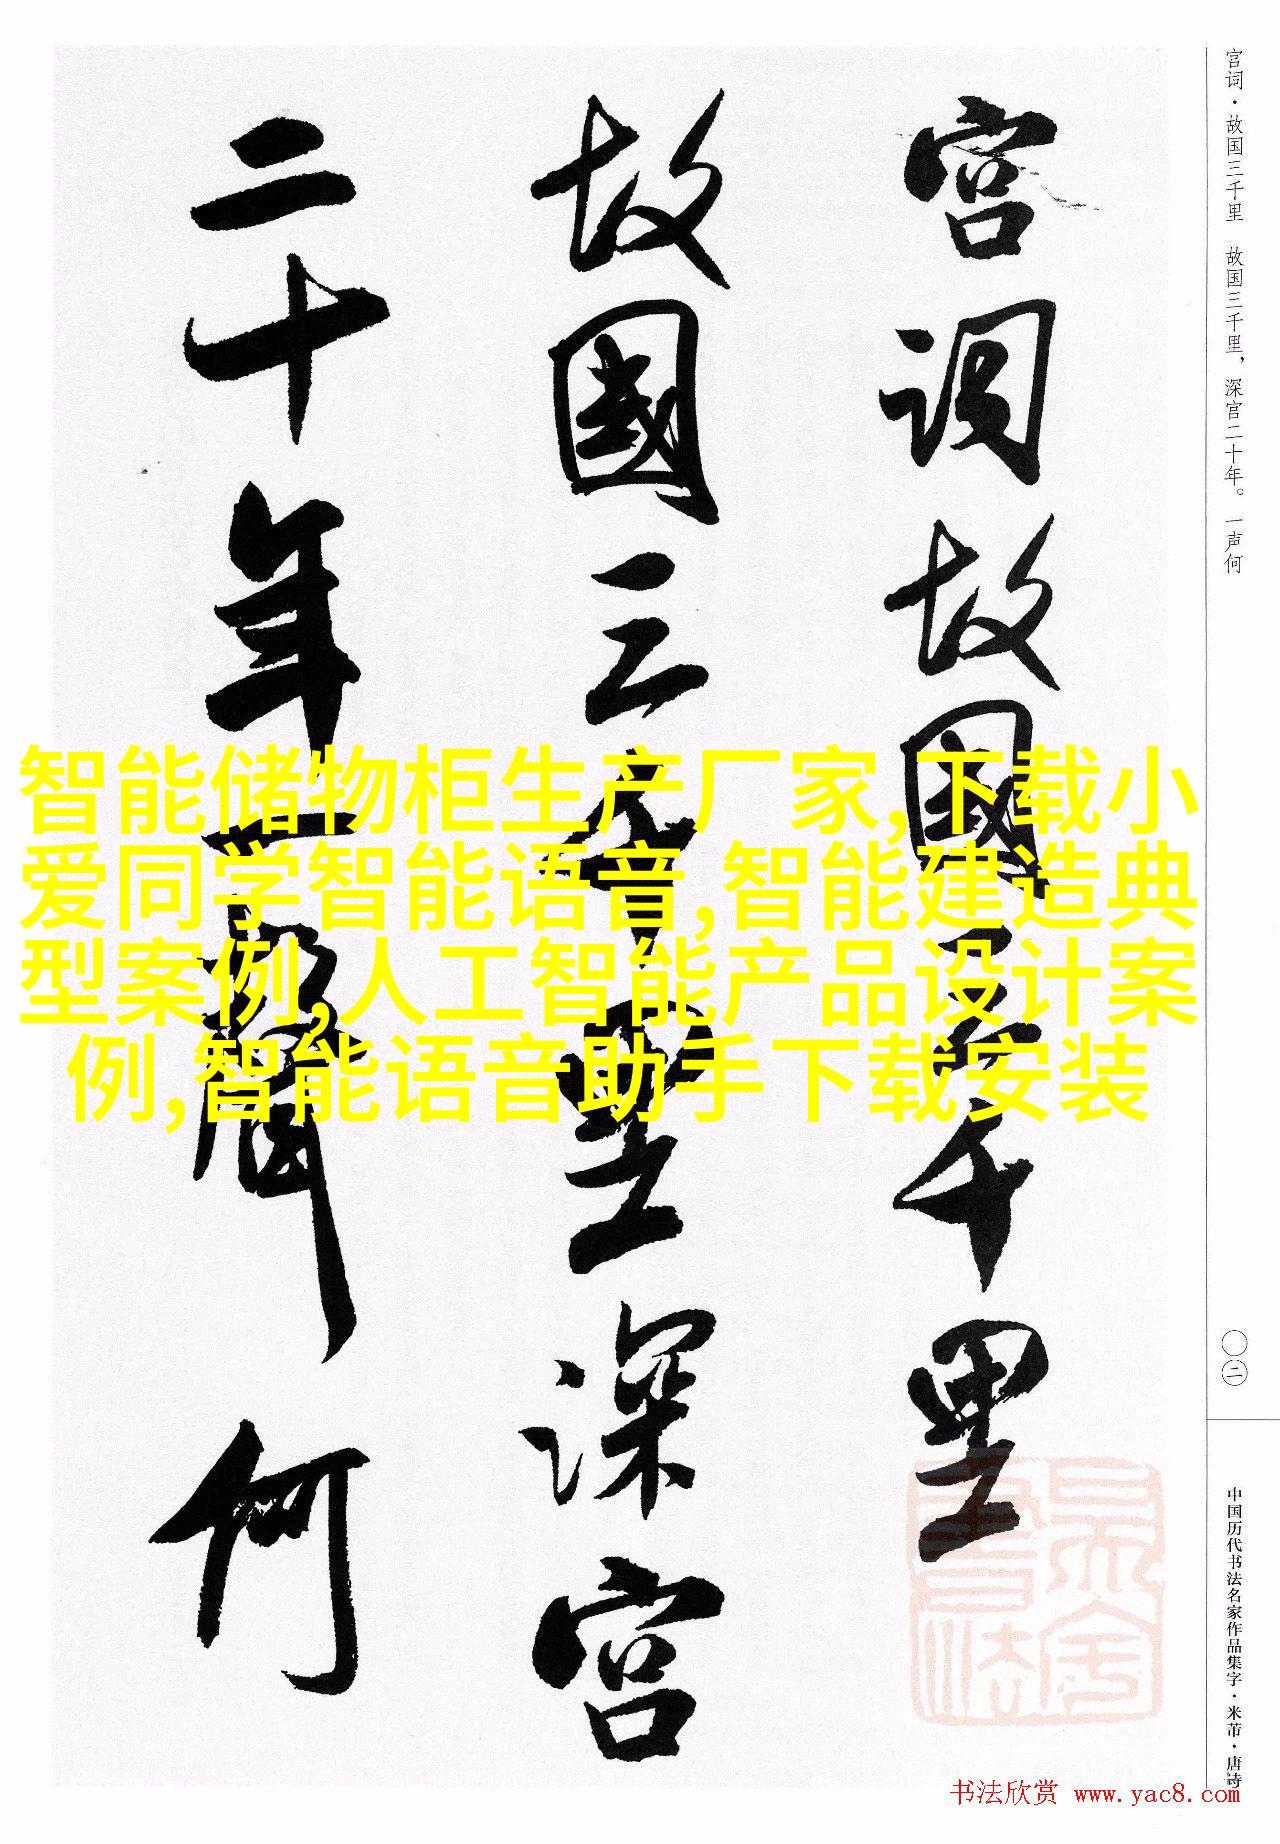 宫词·故国三千里　故国三千里，深宫二十年。一声何
宫词故國三千里
故國三千里深宫
二十年一聲何
智能储物柜生产厂家,下载小
爱同学智能语音,智能建造典
型案例,人工智能产品设计案
例,智能语音助手下载安装
〇二
中国历代书法名家作品集字·米芾·唐诗
书法欣赏 www.yac8.com